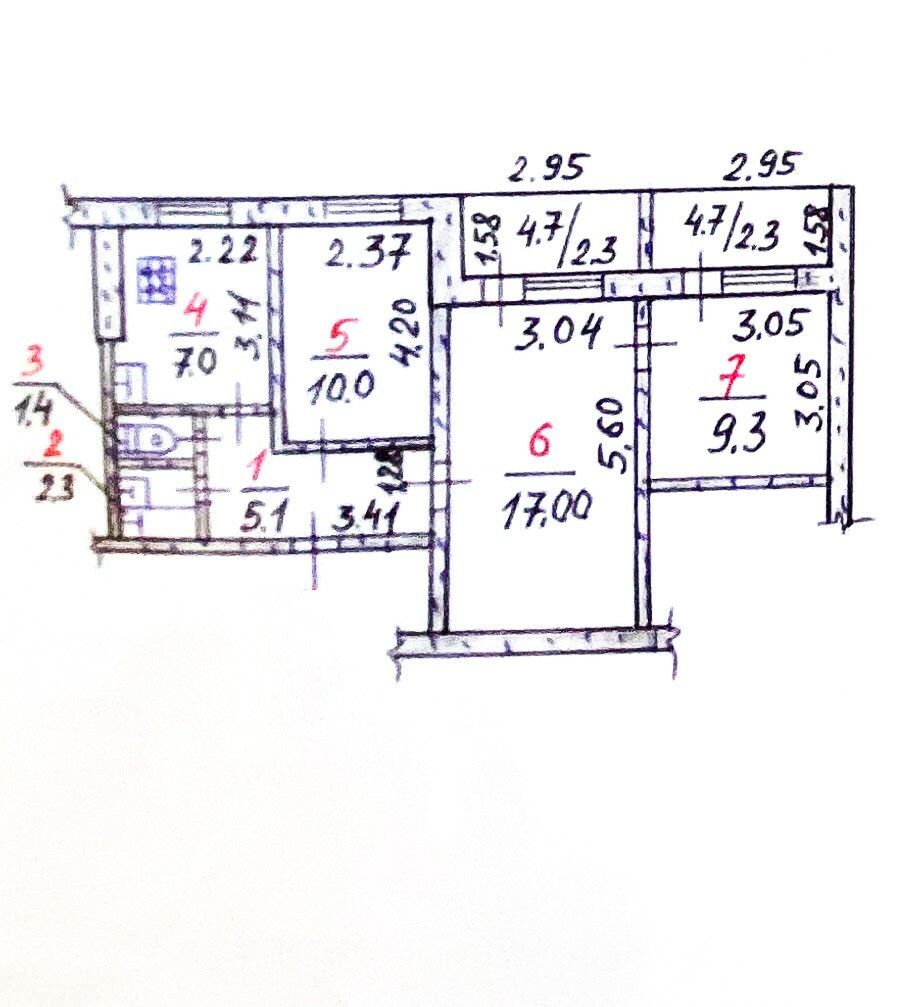 2.95
2.95
1.58
4.7/2.3
4.7/2.3
1.58
2.22
2.37
4
7.0
3.11
5
10.0
4.20
3.04
3.05
7
9.3
3.05
3
1.4
6
17.00
5.60
2
2.3
1
5.1
3.41